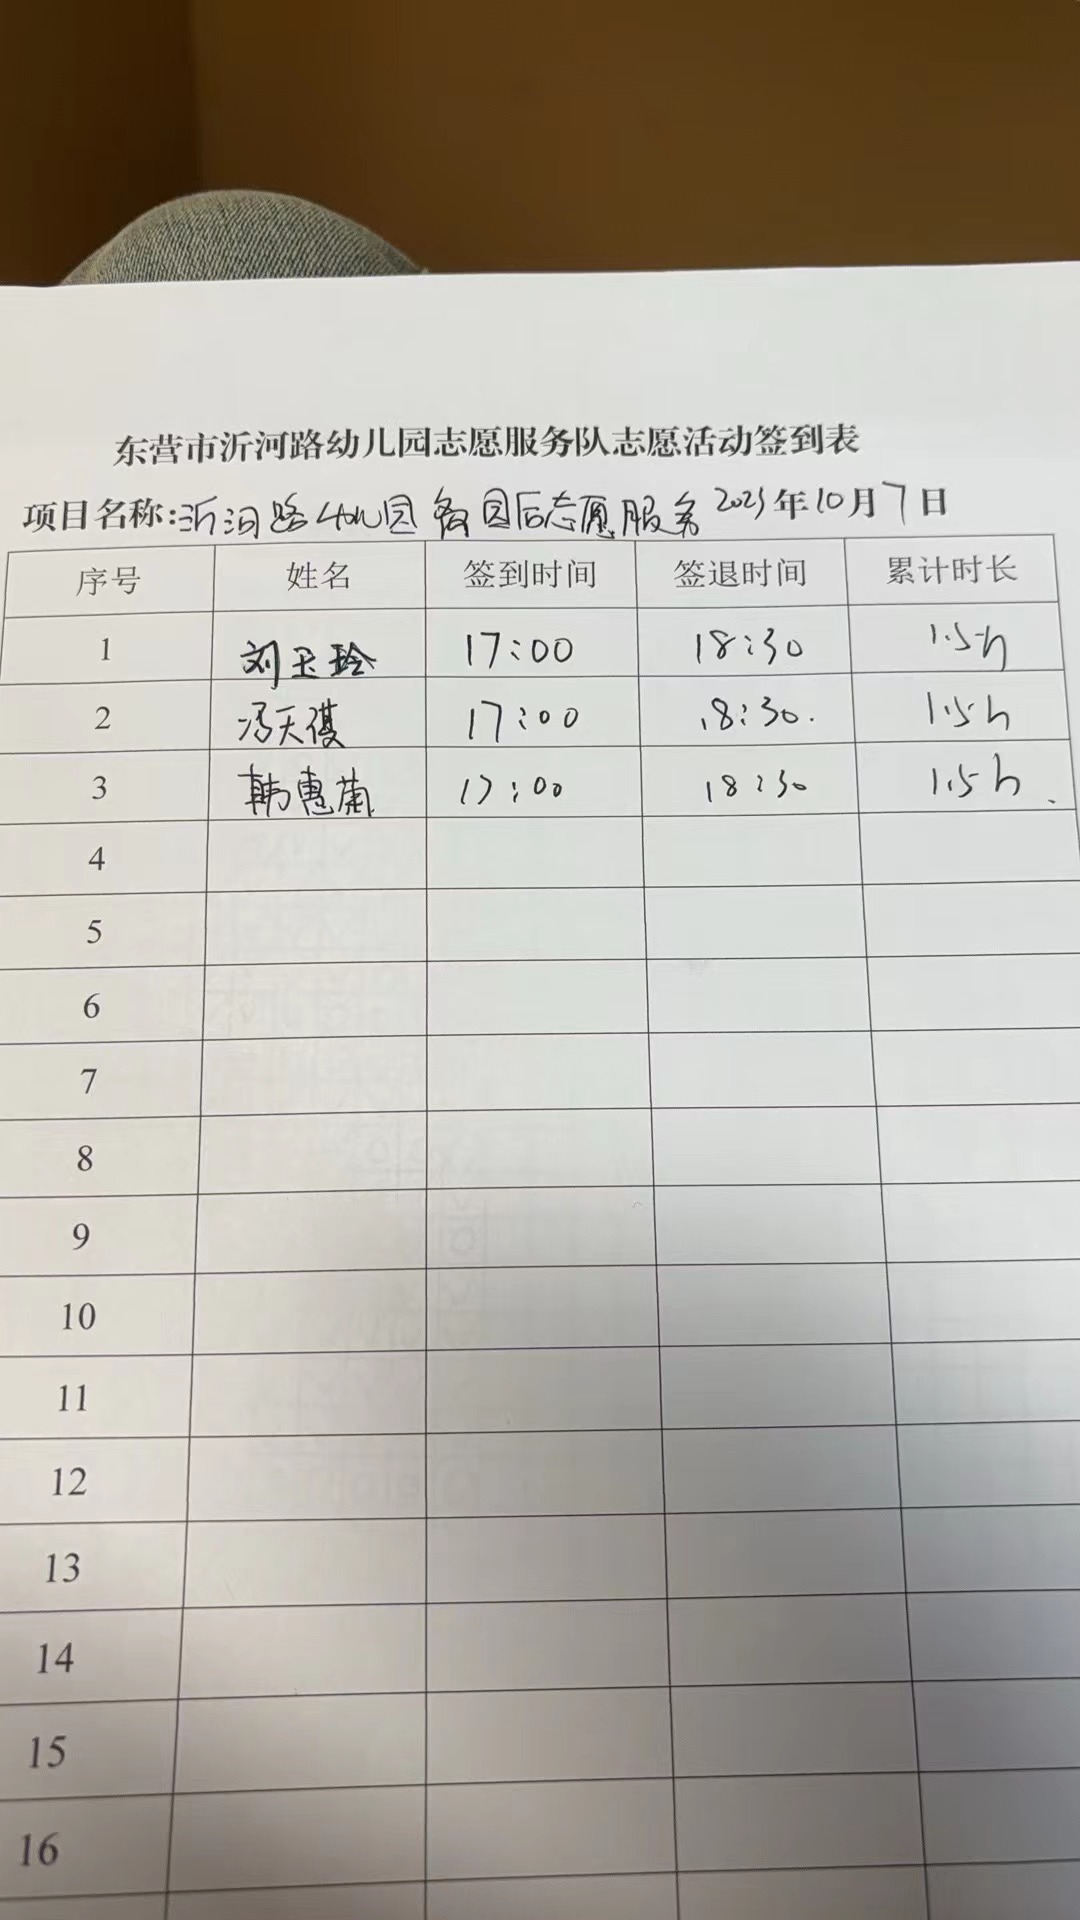 东营市沂河路幼儿园志愿服务队志愿活动签到表
项目名称:沂河路幼儿园离园后志愿服务 2023年10月7日
序号 姓名 签到时间 签退时间 累计时长
1 刘玉玲 17:00 18:30 1.5h
2 冯天 17:00 18:30. 1.5h
3 韩惠 17:00 18:30 1.5h.
4
5
6
7
8
9
10
11
12
13
14
15
16